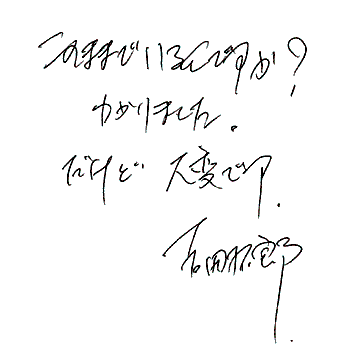 このままでいるんですか？
わかりました。
だけど 大変です.
吉田拓郎